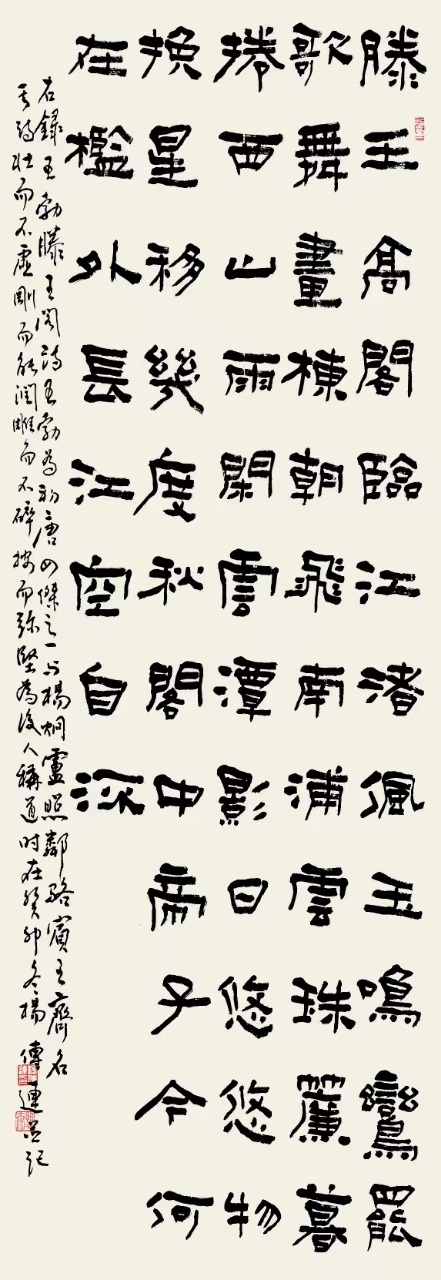 滕王高閣臨江渚佩玉鳴鸞罷
歌舞畫棟朝飛南浦雲珠簾暮
捲西山雨閑雲潭影日悠悠物
換星移幾度秋閣中帝子今何
在檻外長江空自流
右録王勃滕王閣詩王勃為初唐四傑之一与楊炯盧照鄰駱賓王齊名
其詩壯而不虛剛而能潤雕而不碎按而弥堅為後人稱道时在癸卯冬楊傳連並記